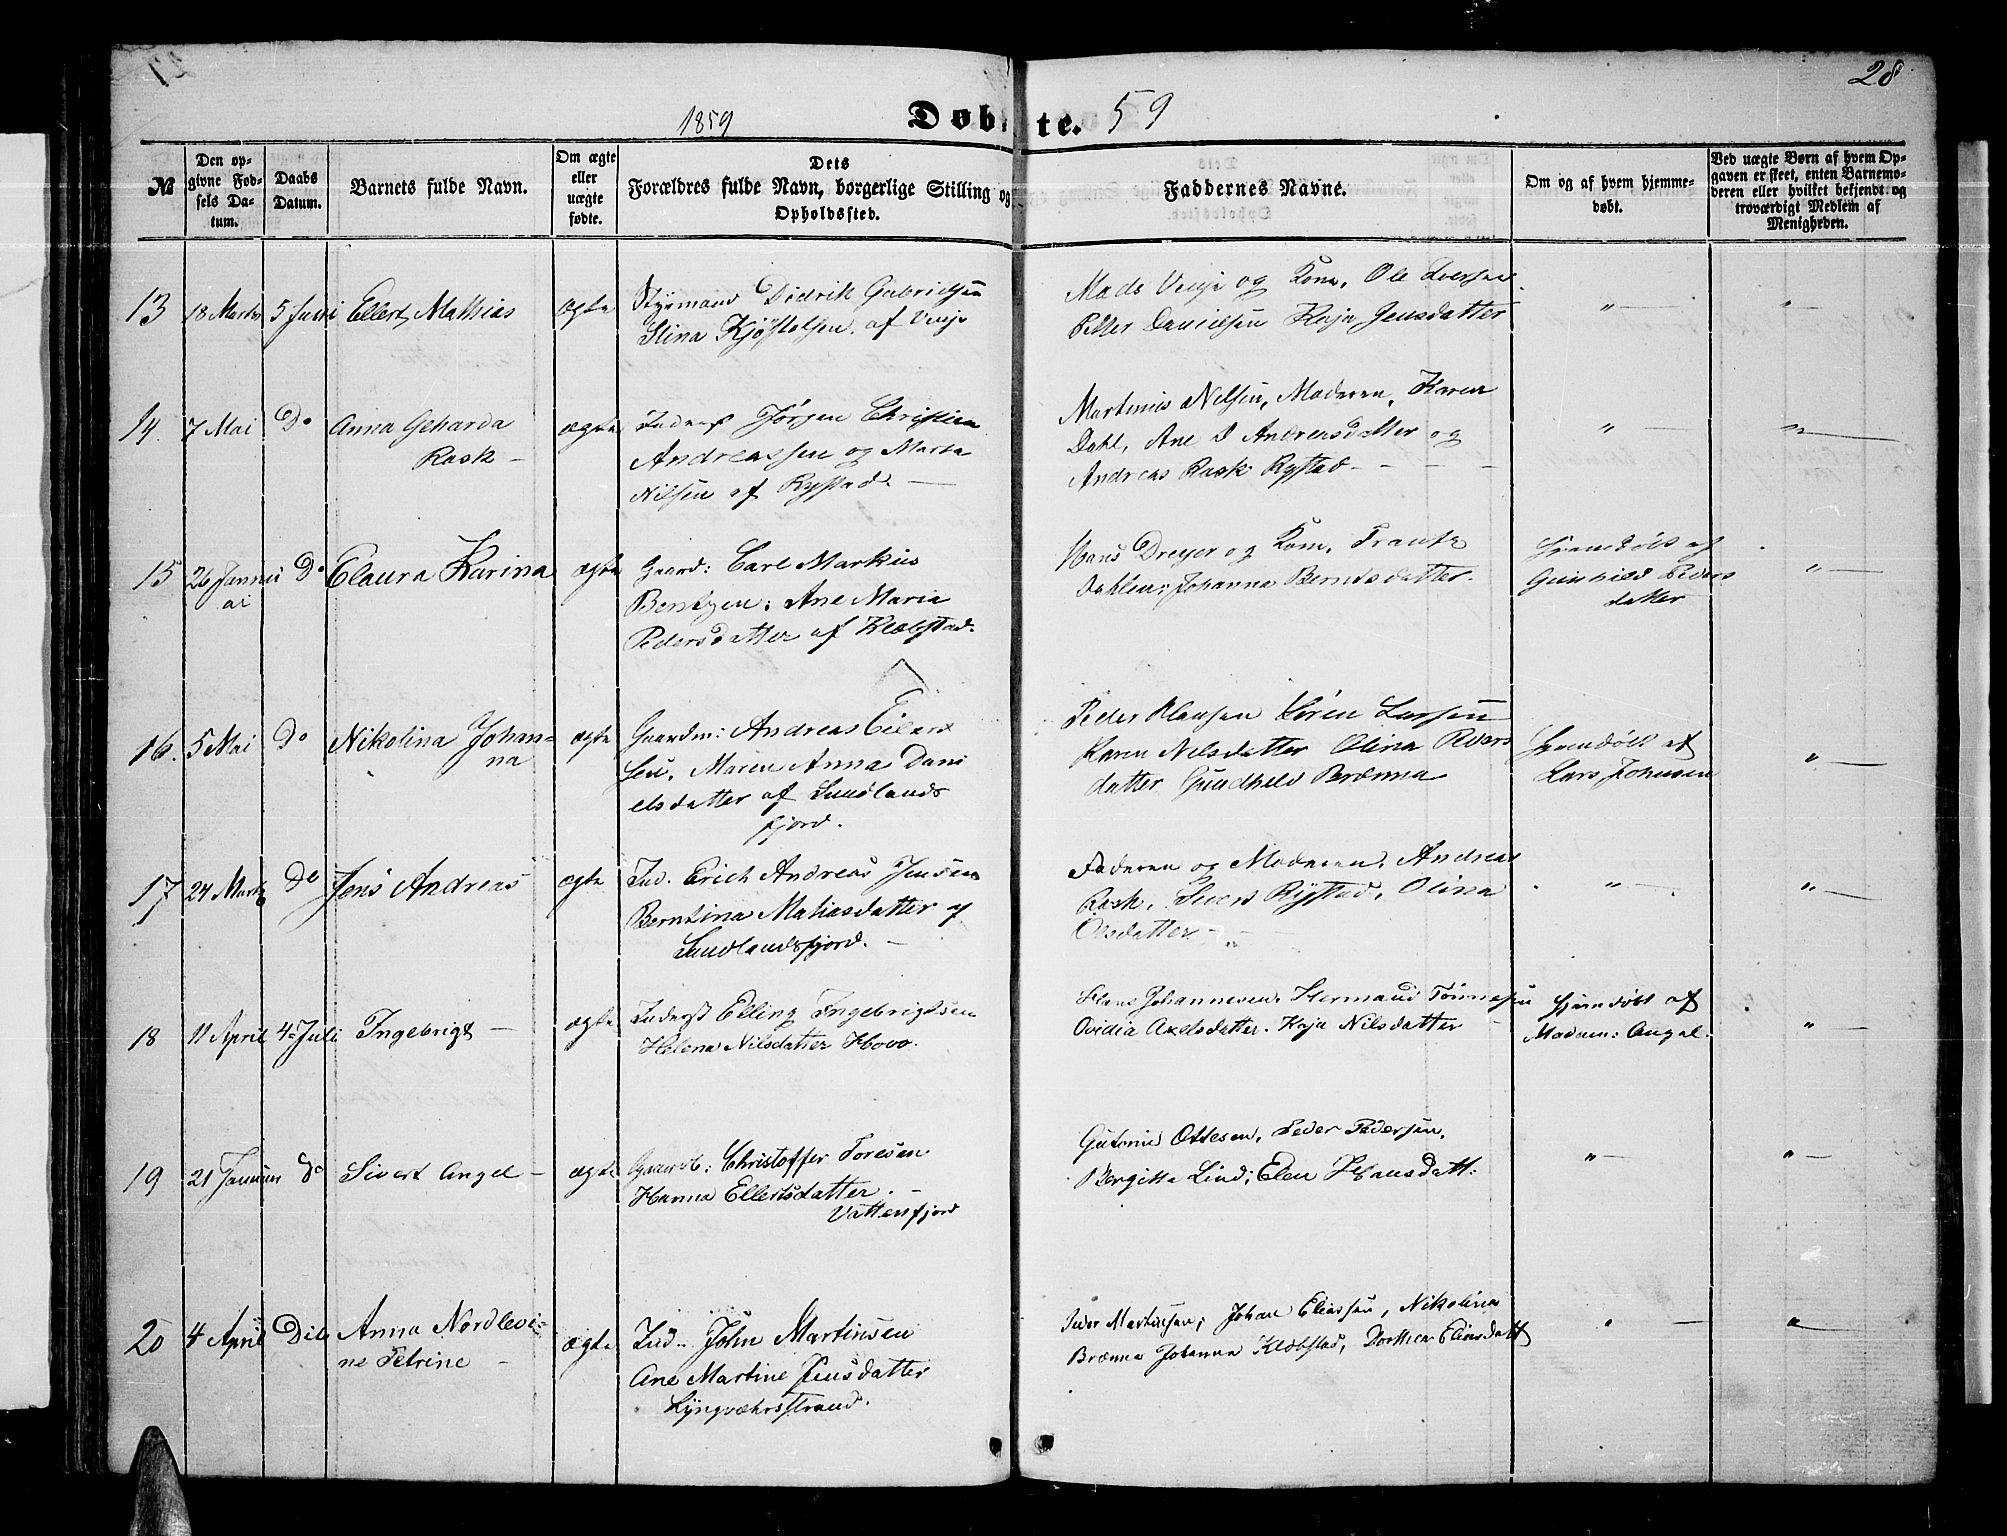 28
1859 Døbte. 59
№
Den opgivne Fødsels Datum.
Daabs Datum.
Barnets fulde Navn.
Om ægte eller uægte fødte.
Dets Forældres fulde Navn, borgerlige Stilling og Opholdssted.
Faddernes Navne.
Om og af hvem hjemmedøbt.
Ved uægte Børn af hvem Opgaven er skeet, enten Barnemoderen eller hvilket bekjendt og troværdigt Medlem af Menigheden.
13 18 Marts 5 Juni Ellert Mathias ægte
Styrmand Didrik Gabrielsen
Stina Kjøstelsen af Veije
Mads Veije og Kone, Ole Iversen
Petter Danielsen Kaja Jensdatter
" — " —
14. 7 Mai Do Anna Geharda
Rask —
ægte
Inderst Jørgen Christian
Andreassen og Marta
Nilsen af Rystad. —
Martinus Nilsen, Moderen, Karen
Dahl, Ane D Andreasdatter og
Andreas Rask Rystad - - - -
" — " —
15 26 Janu
ai
Do Elaura Karina ægte
Gaard: Carl Markus
Bentzen; Ane Maria
Pedersdatter af Kleobstad.
Hans Dreyer og Kone, Frants
Dahlen; Johanna Berntsdatter.
Hjemdøbt af
Gunhild Peders
datter
" —
16. 5 Mai Do Nikolina Johan-
na
ægte
Gaardm: Andreas Eilert
sen, Maren Anna Dani
elsdatter af Sundlands
fjord.
Peder Olausen Søren Larsen
Karen Nilsdatter Olina Peders
datter Gundhild Brænna
Hjemdøbt af
Lars Johnsen
" —
17 24 Marts Do Jens Andreas ægte
Ind. Erich Andreas Jensen
Berntina Matiasdatter af
Sundlandsfjord. —
Faderen og Moderen, Andreas
Rask, Sivert Rystad, Olina
Olsdatter - "
" — " —
18 11 April 4 Juli Ingebrigt — ægte
Inderst Elling Ingebrigtsen
Helena Nilsdatter Hovo.
Hans Johannesen, Hermand Tönnesen
Ovidia Axelsdatter. Kaja Nilsdatter
Hjemdøbt af
Madam: Angel.
" —
19 21 Januar do Sivert Angel — ægte
Gaardb: Christoffer Toresen
Hanna Ellertsdatter.
Vattenfjord
Gutorm Ottesen, Peder Pedersen,
Bergitte Lind; Elen Hansdatt:
" — " —
20 4 April Dito Anna Nordlevi-
ne Petrine —
ægte
Ind.. John Martinsen
Ane Martine Jensdatter
Lyngvæhrsstrand.
Peder Martinsen; Johan Eliassen, Nikolina
Brænna Johanna Kleobstad, Dorthea Eliasdatt
" — " —